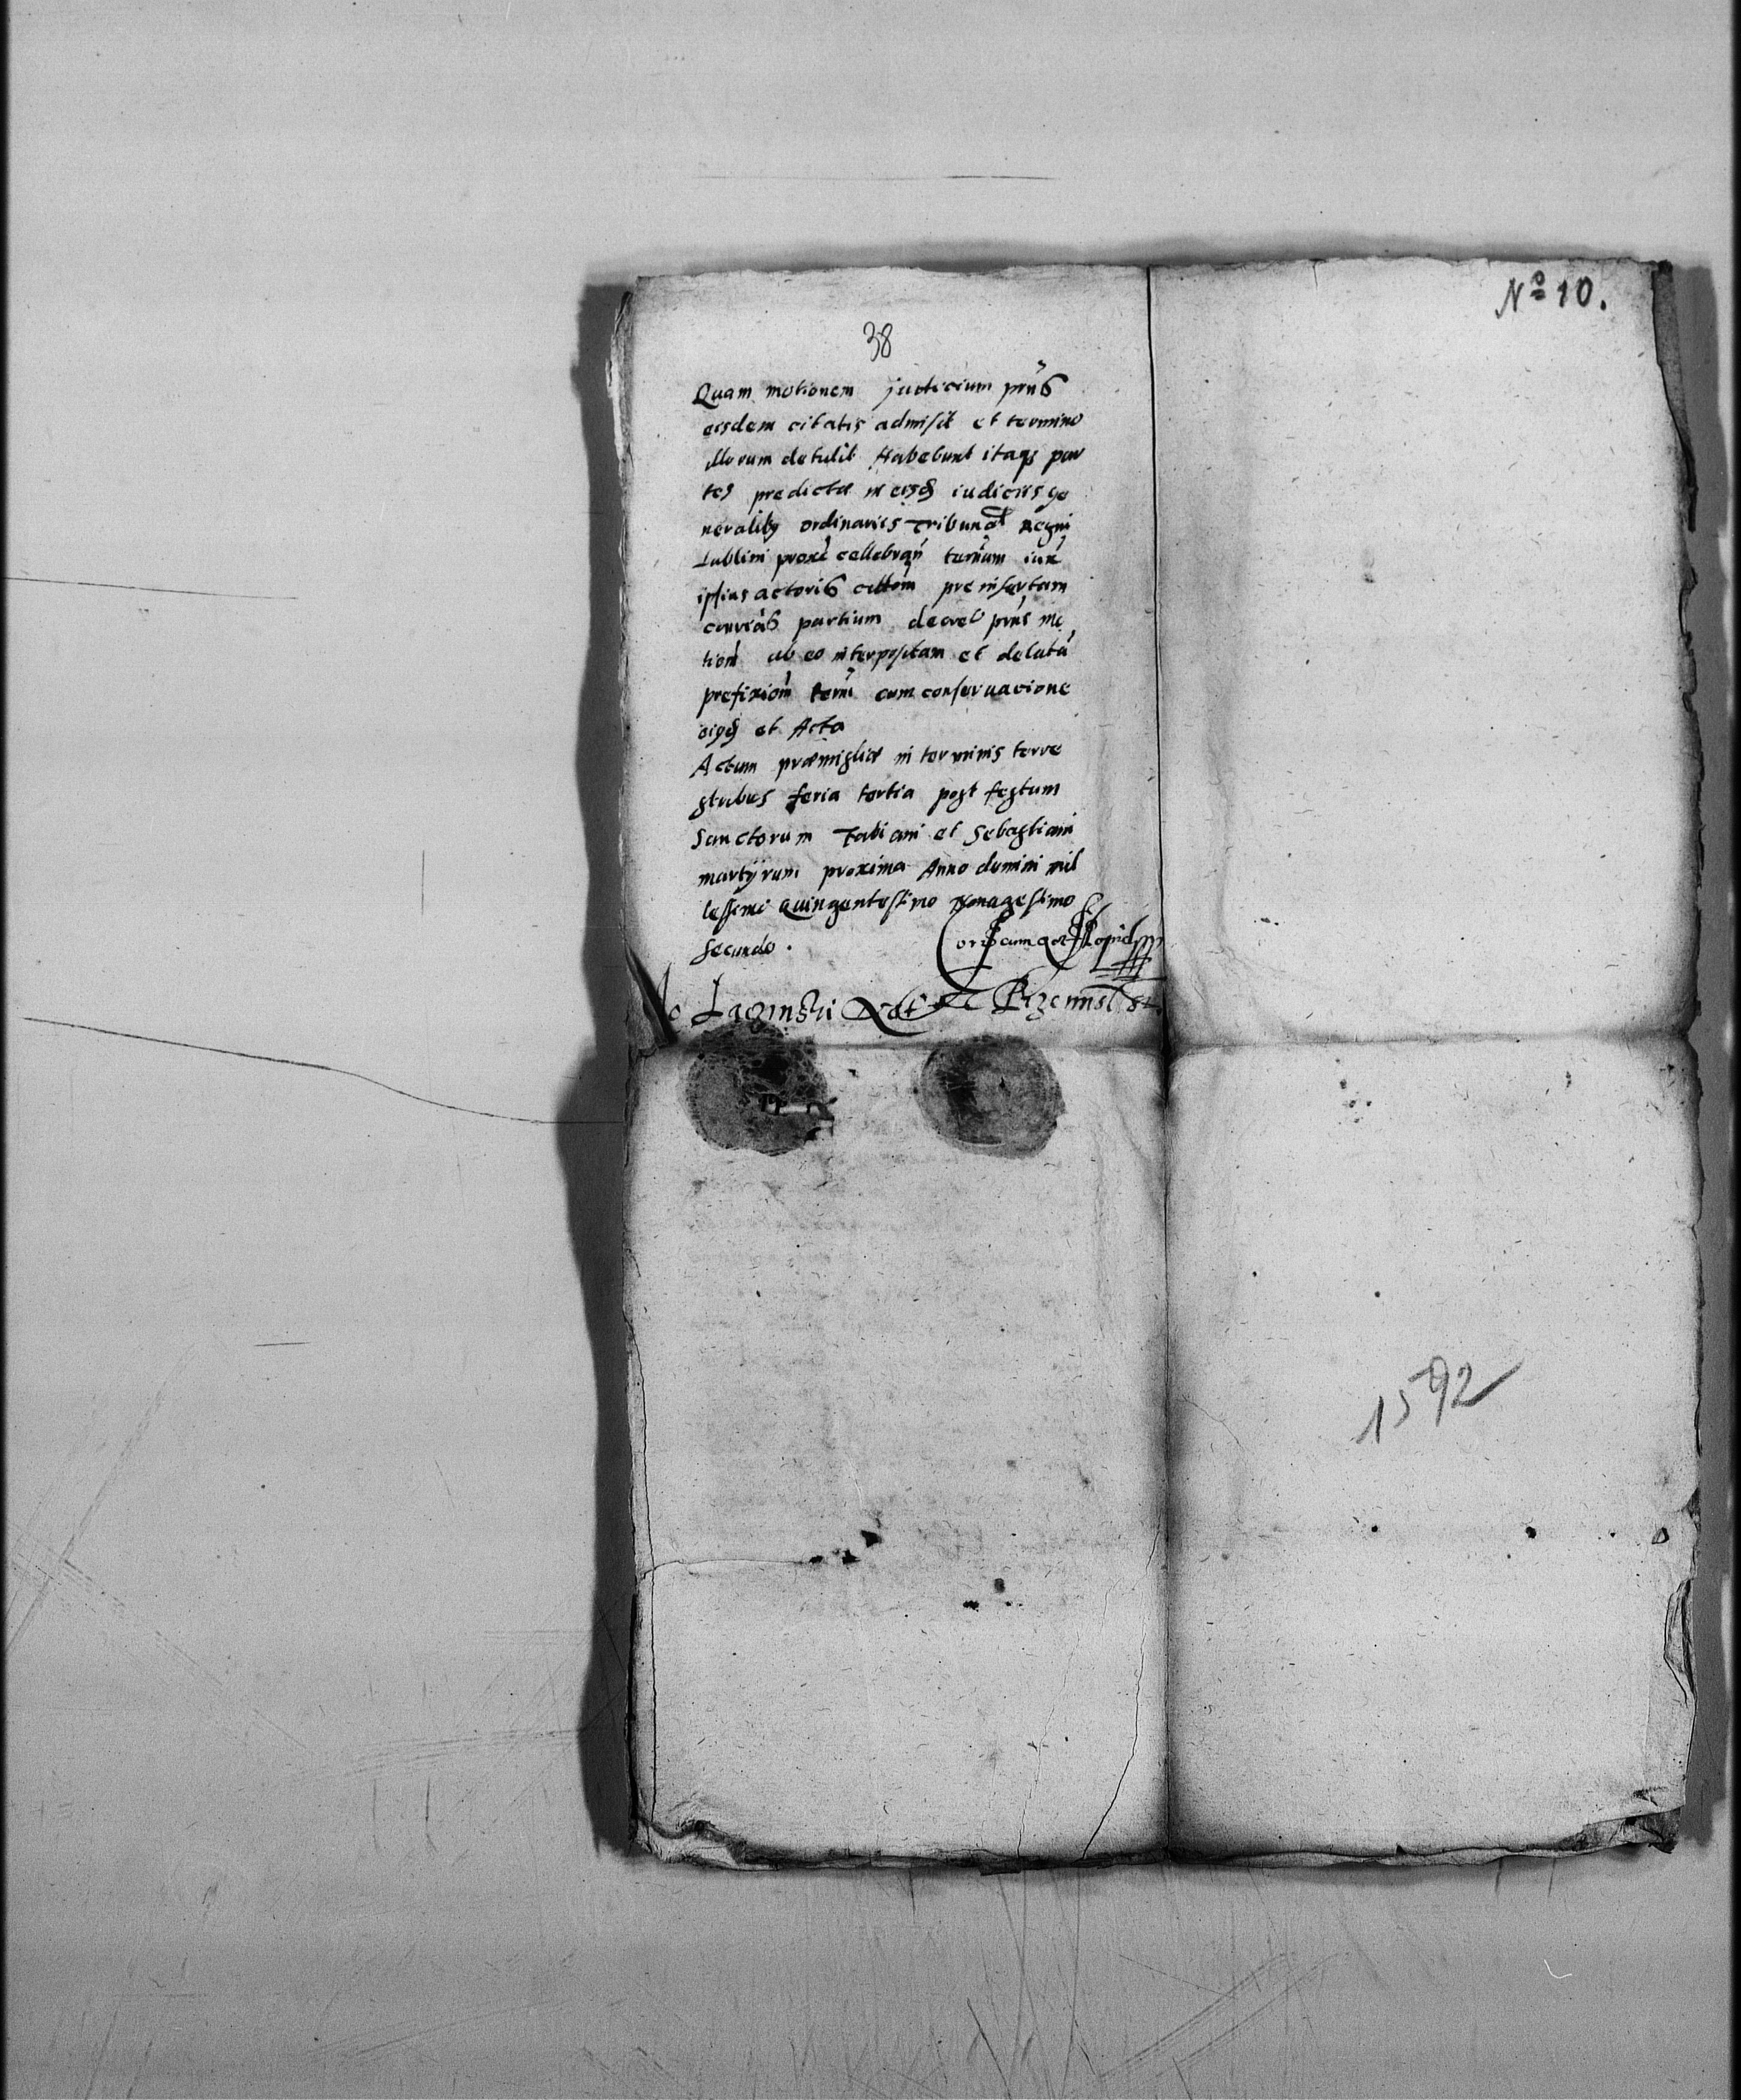 38
Quam motionem judicium pñs
eisdem citatis admisit et termino
illorum detulit Habebunt itaqz par
tes predictæ in eisd iudiciis ge
neralibz ordinariis Tribunal Regni
Lublini proxe cellebran termum iux
ipsius actoris cittom preinsertam
partium decret pñs mo
tiom ab eo interpositam et delata
prefixiom termi cum conservacione
et Acta
Actum præmisliæ in terminis terre
stribus feria tertia post festum
Sanctorum Fabiani et Sebastiani
martÿrum proxima Anno domini mil
lessimo quingentesimo nonagesimo
secundo.
cum
N° 10.
1592